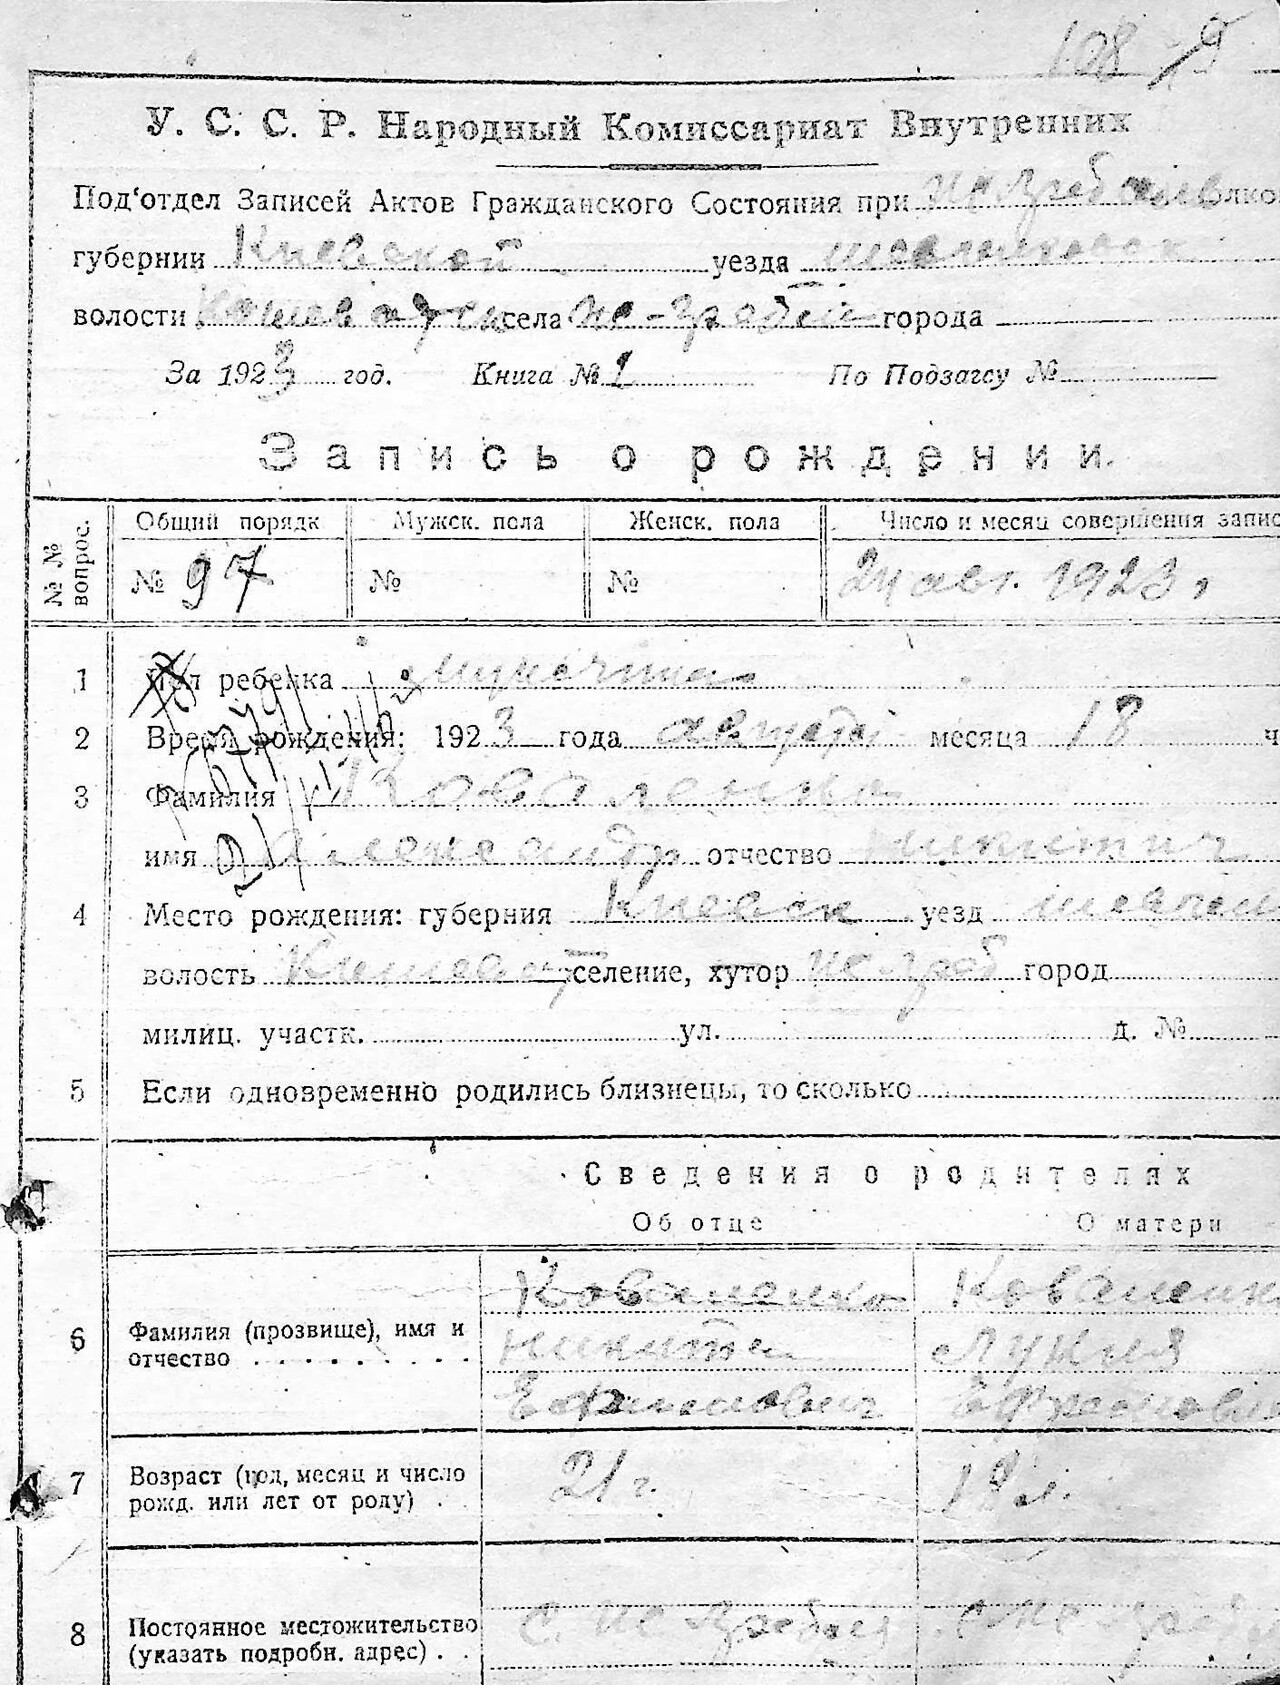 108
У. С. С. Р. Народный Комиссариат Внутренних
Под‘отдел Записей Актов Гражданского Состояния при
губернии Киевской уезда
волости села города
За 1923 год. Книга № 1 По Подзагсу №
Запись о рождении.
№ № вопрос.
Общий порядк Мужск. пола Женск. пола Число и месяц совершения запис
№ 97 № № 24 авг. 1923 г
1 Пол ребенка мужчина
2 Время рождения: 1923 года августа месяца 18 ч
3 Фамилия Коваленко
имя Александр отчество Никитич
4 Место рождения: губерния Киевск уезд
волость селение, хутор город
милиц. участк. ул. д. №
5 Если одновременно родились близнецы, то сколько
Сведения о родителях
Об отце О матери
Коваленко Коваленко
6 Фамилия (прозвище), имя и Никита Лукия
отчество Ефимович
7 Возраст (год, месяц и число 21 г. 19 л.
рожд. или лет от роду)
8 Постоянное местожительство с.
(указать подробн. адрес)